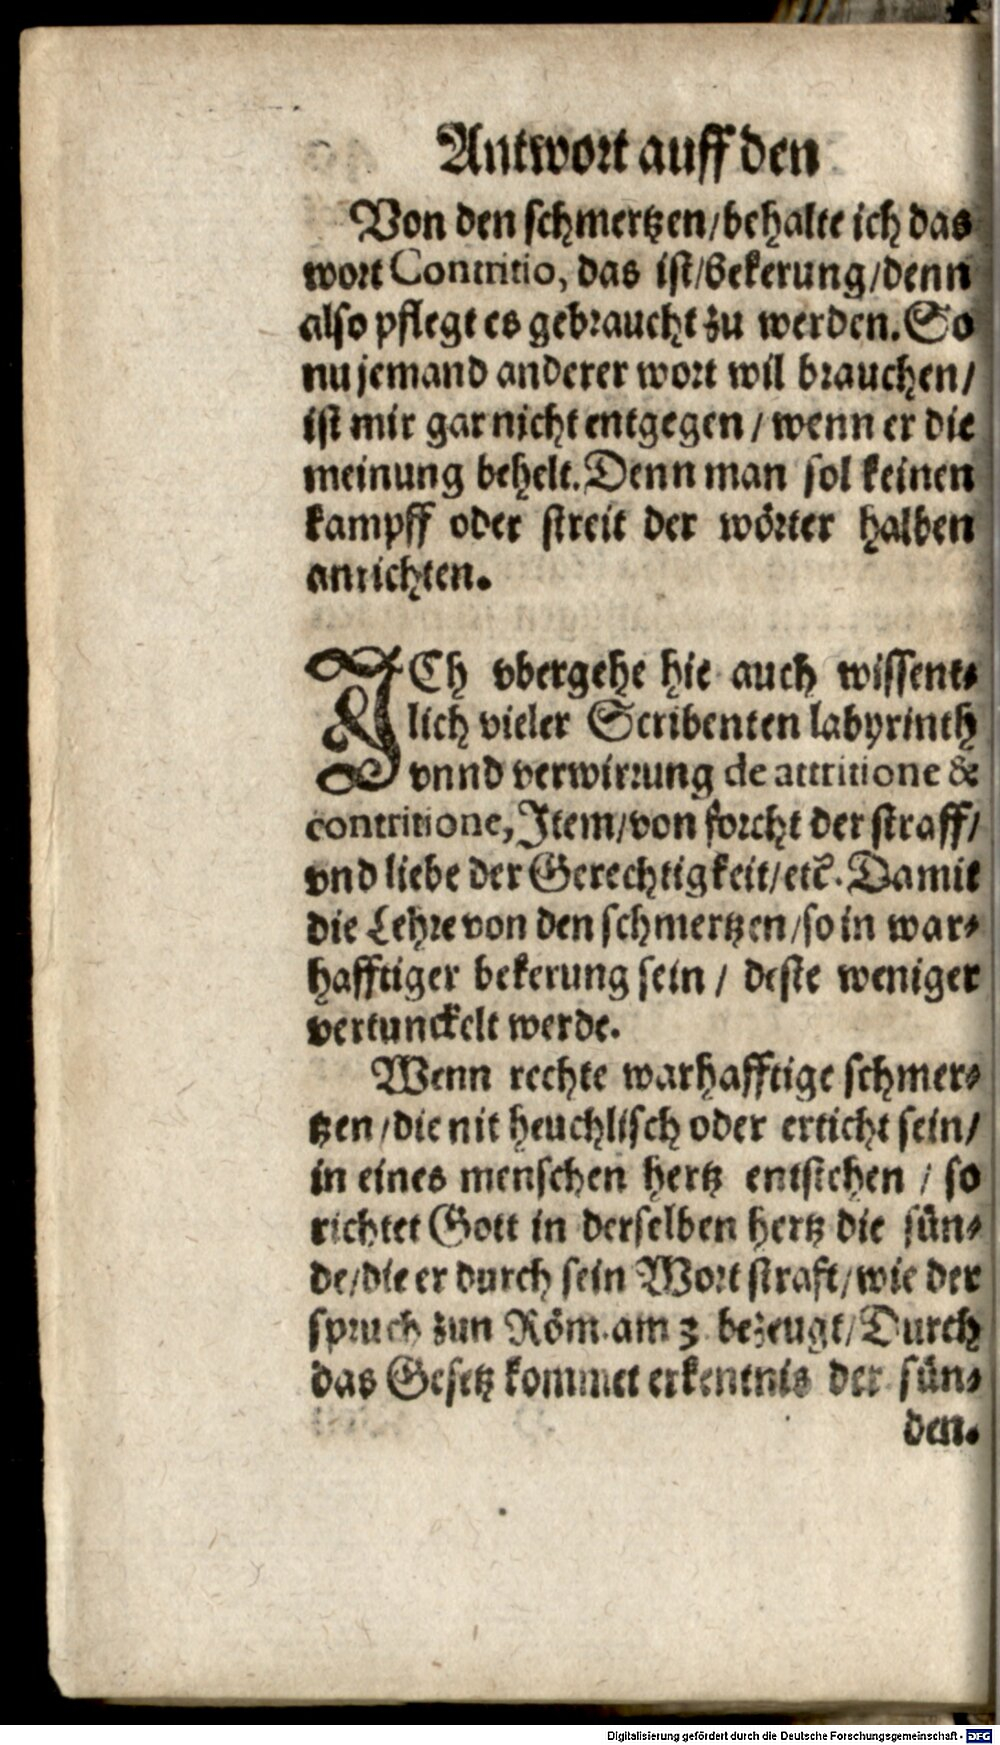 Antwort auff den
Von den schmertzen/behalte ich das
wort Contritio, das ist/bekerung/denn
also pflegt es gebraucht zu werden. So
nu jemand anderer wort wil brauchen/
ist mir gar nicht entgegen/wenn er die
meinung behelt. Denn man sol keinen
kampff oder streit der wörter halben
anrichten.
ICh vbergehe hie auch wissent⸗
lich vieler Scribenten labyrinth
vnnd verwirrung de attritione &
contritione, Item/von forcht der straff/
vnd liebe der Gerechtigkeit/etc. Damit
die Lehre von den schmertzen/so in war⸗
hafftiger bekerung sein/ deste weniger
vertunckelt werde.
Wenn rechte warhafftige schmer⸗
tzen/die nit heuchlisch oder erticht sein/
in eines menschen hertz entstehen/ so
richtet Gott in derselben hertz die sün⸗
de/die er durch sein Wort straft/wie der
spruch zun Röm. am 3. bezeugt/Durch
das Gesetz kommet erkentnis der sün⸗
den.
Digitalisierung gefördert durch die Deutsche Forschungsgemeinschaft - DFG